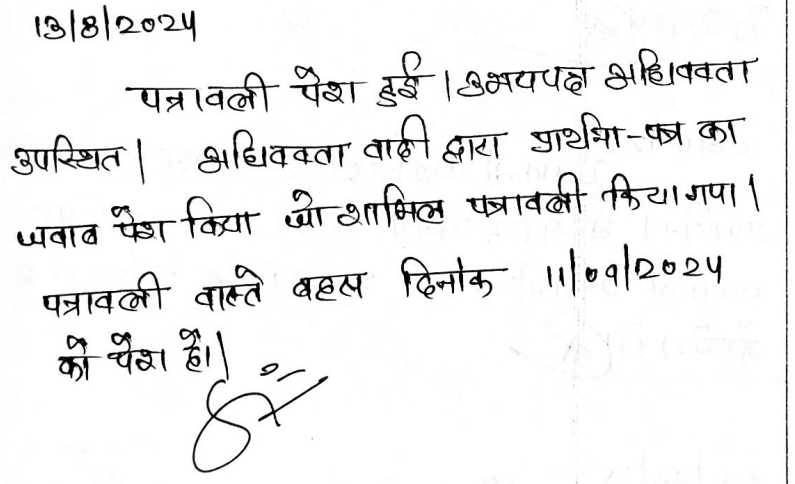 13/8/2024
पत्रावली पेश हुई । उभयपक्ष अधिवक्ता
उपस्थित । अधिवक्ता वादी द्वारा प्रार्थना-पत्र का
जवाब पेश किया जो शामिल पत्रावली किया गया ।
पत्रावली वास्ते बहस दिनांक 11/09/2024
को पेश हो ।